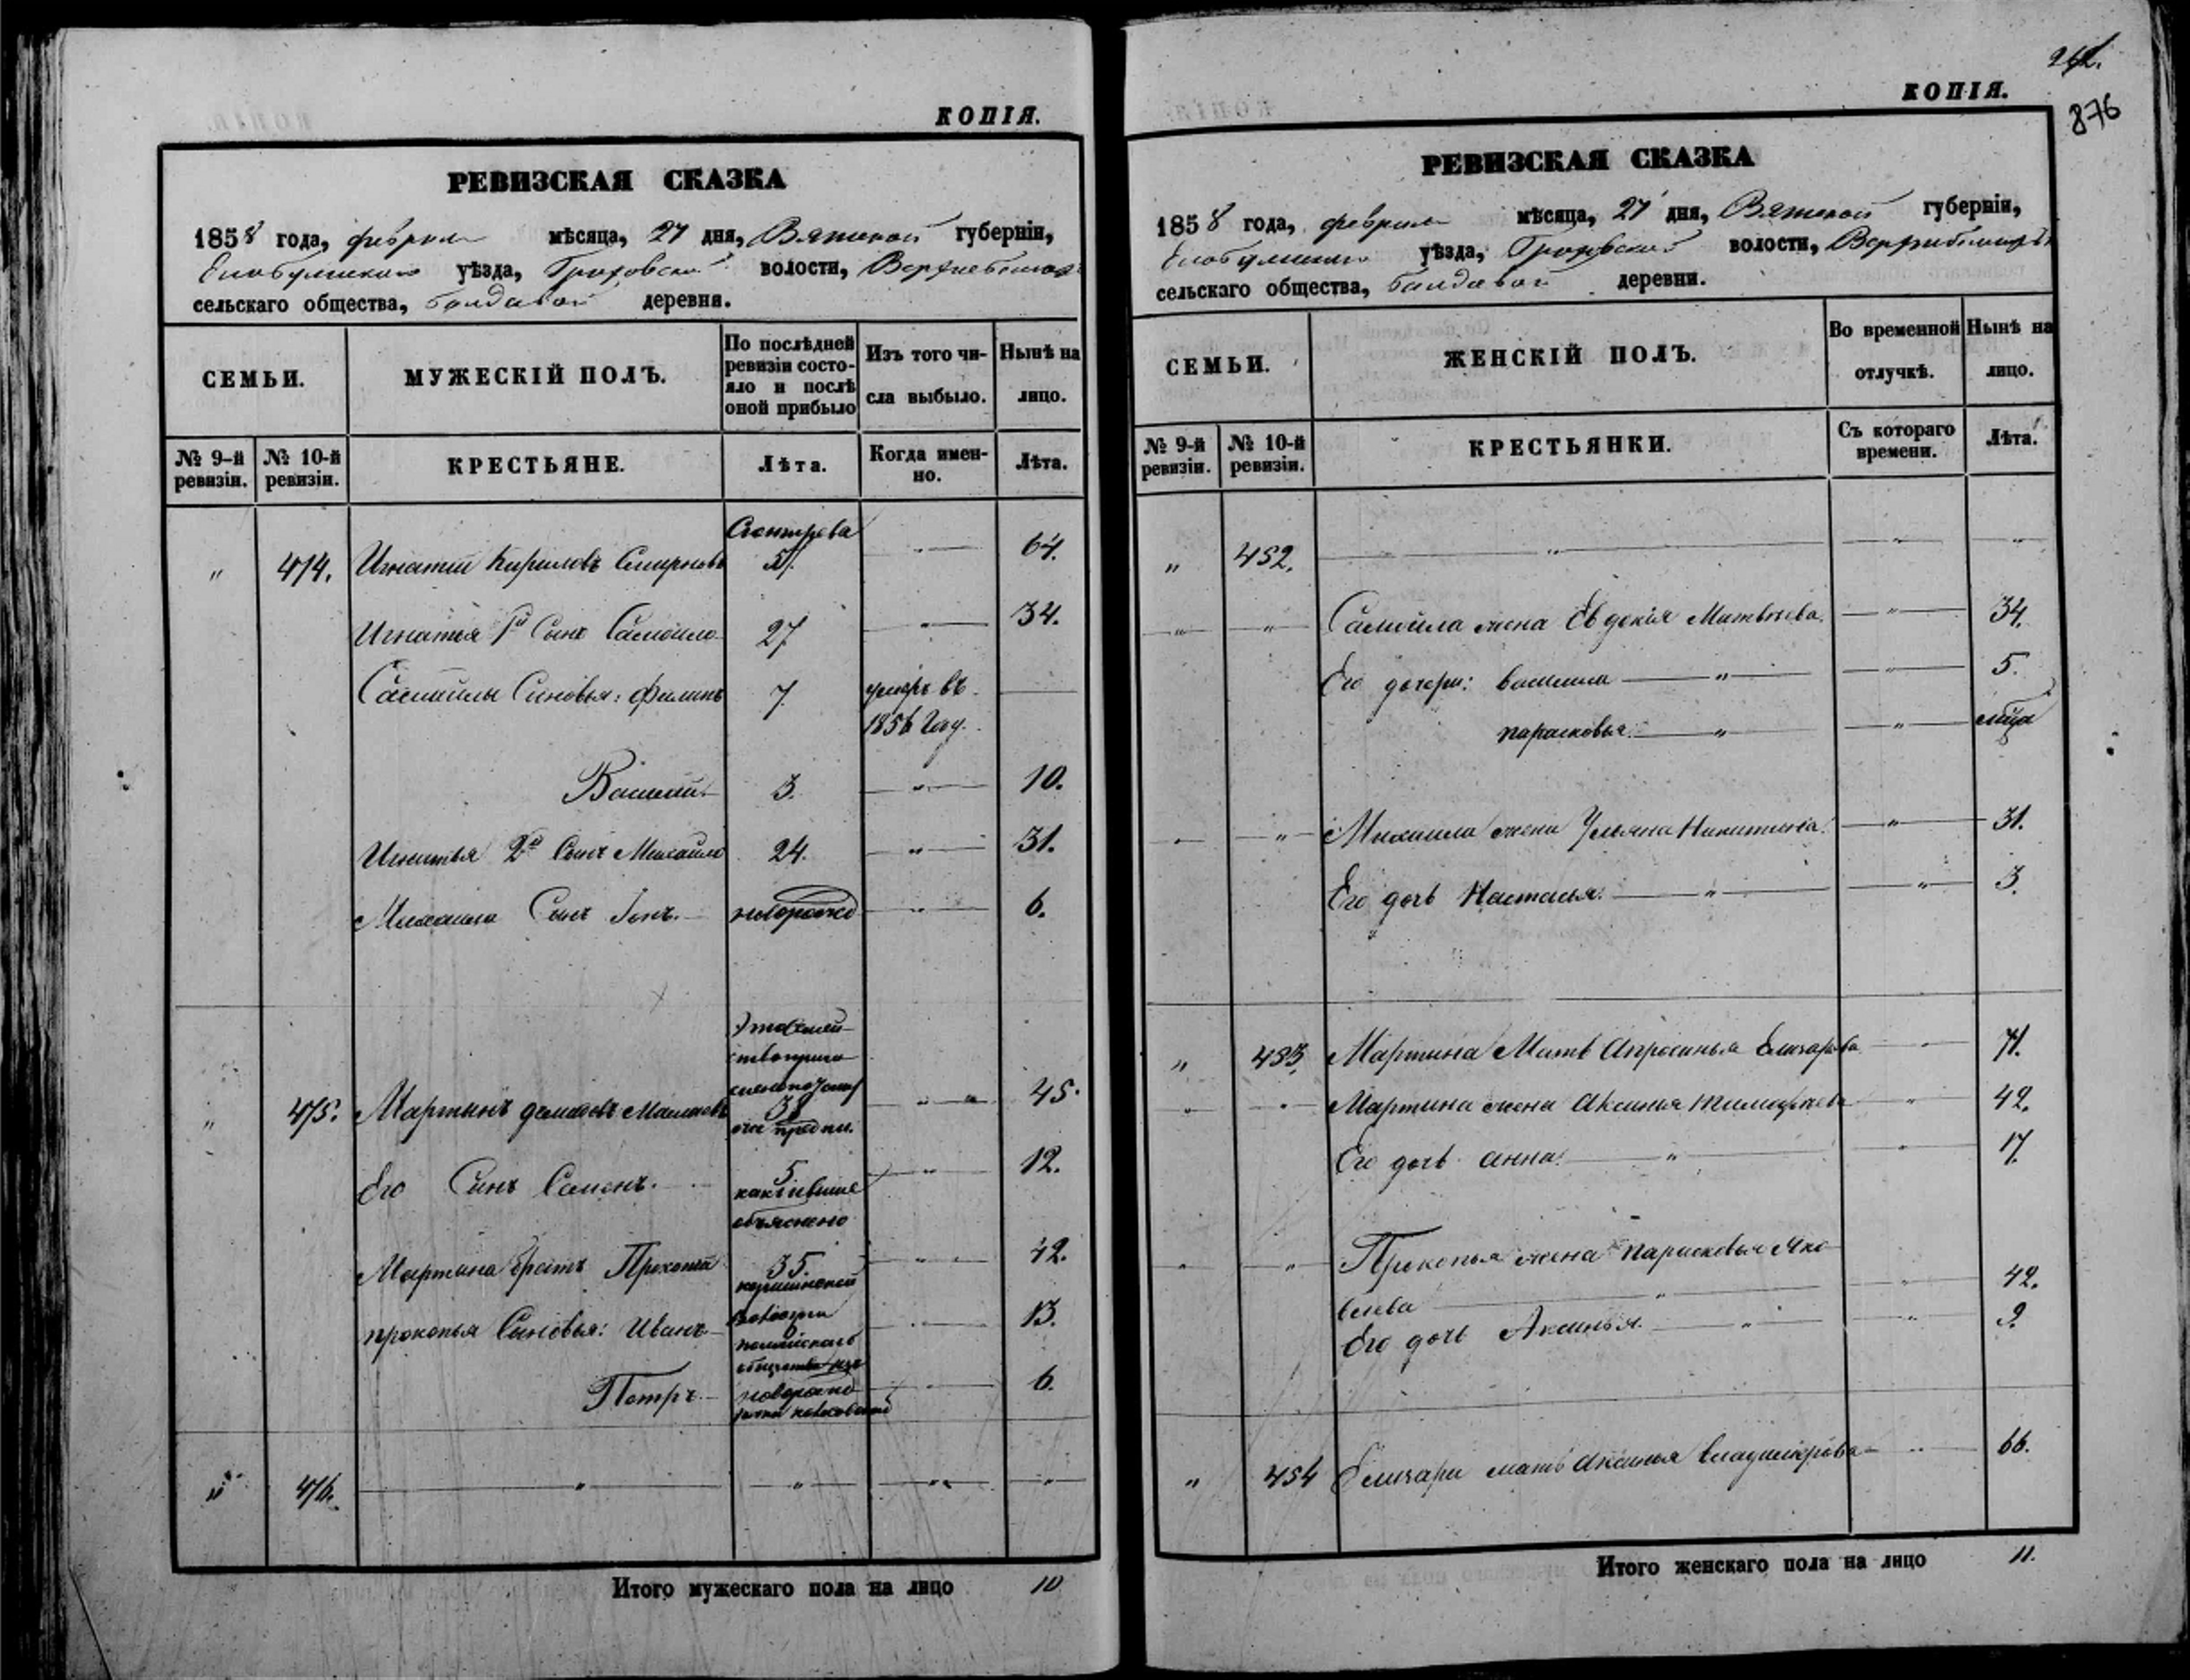 КОПІЯ.
РЕВИЗСКАЯ СКАЗКА
1858 года, февраля мѣсяца, 27 дня, Вятской губерніи,
Елабужскаго уѣзда, Граховской волости,
сельскаго общества, балдавой деревня.
СЕМЬИ.
МУЖЕСКІЙ ПОЛЪ.
По послѣдней
ревизіи состо-
яло и послѣ
оной прибыло
Изъ того чи-
сла выбыло.
Нынѣ на
лицо.
№ 9-й
ревизіи.
№ 10-й
ревизіи.
КРЕСТЬЯНЕ.
Лѣта.
Когда имен-
но.
Лѣта.
" 474. Игнатій Кириловъ Смирновъ 57. " 64.
Игнатья 1й Сынъ Самойло 27 " 34.
Самойлы Сыновья: Филипъ 7. умеръ въ
1856 году.
Василий 3. " 10.
Игнатья 2й Сынъ Михайло 24. " 31.
Михайла Сынъ Іонъ. новорожд " 6.
Это семей
ство причи
слено по указу
" 475. Мартынъ 38 " " 45.
Его Сынъ Семенъ. 5 " 12.
какъ и выше
объяснено
Мартина братъ Прокопій 35. " 42.
прокопья Сыновья: Иванъ " 13.
общества изъ
Петръ. новорожд " 6.
" 476. " " " "
Итого мужескаго пола на лицо 10
262.
876
КОПІЯ.
РЕВИЗСКАЯ СКАЗКА
1858 года, февраля мѣсяца, 27 дня, Вятской губерніи,
Елабужскаго уѣзда, Граховской волости,
сельскаго общества, балдавой деревни.
СЕМЬИ.
ЖЕНСКІЙ ПОЛЪ.
Во временной
отлучкѣ.
Нынѣ на
лицо.
№ 9-й
ревизіи.
№ 10-й
ревизіи.
КРЕСТЬЯНКИ.
Съ котораго
времени.
Лѣта.
" 452. " " "
" " Самойла жена Евдокія Матвѣева. " 34.
Его дочери: василиса " " 5.
парасковья. " "
" " Михаила жена Ульяна Никитина. " 31.
Его дочь Настасья. " " 3.
" 453. Мартина Мать Апросинья Елизарова " 71.
" " Мартина жена Аксинья Тимофеева " 42.
Его дочь анна. " " 17.
" " Прокопья жена парасковья Яко
влева " " 42.
Его дочь Аксинья. " "
" 454 Елизара мать Аксинья Владимирова " 66.
Итого женскаго пола на лицо 11.